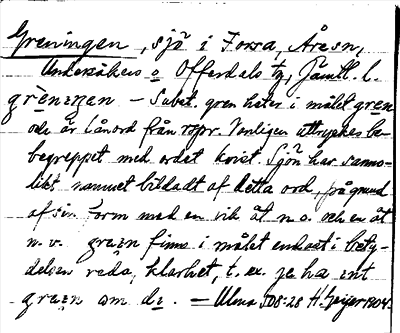 Greningen, sjö i Forsa, Åresn,
Undersåkers o Offerdals tg, Jämtl. l.
grēneŋen – Subst. gren heter i målet gren
och är lånord från rspr. Vanligen uttryckes be-
begreppet med ordet kvist. Sjön har sanno-
likt namnet bildadt af detta ord, på grund
af sin form med en vik åt n.o. och en åt
n.v. finns i målet endast i bety-
delsen reda, klarhet, t. ex. ja ha int
om de. – Ulma 508:28 H. Geijer 1904.